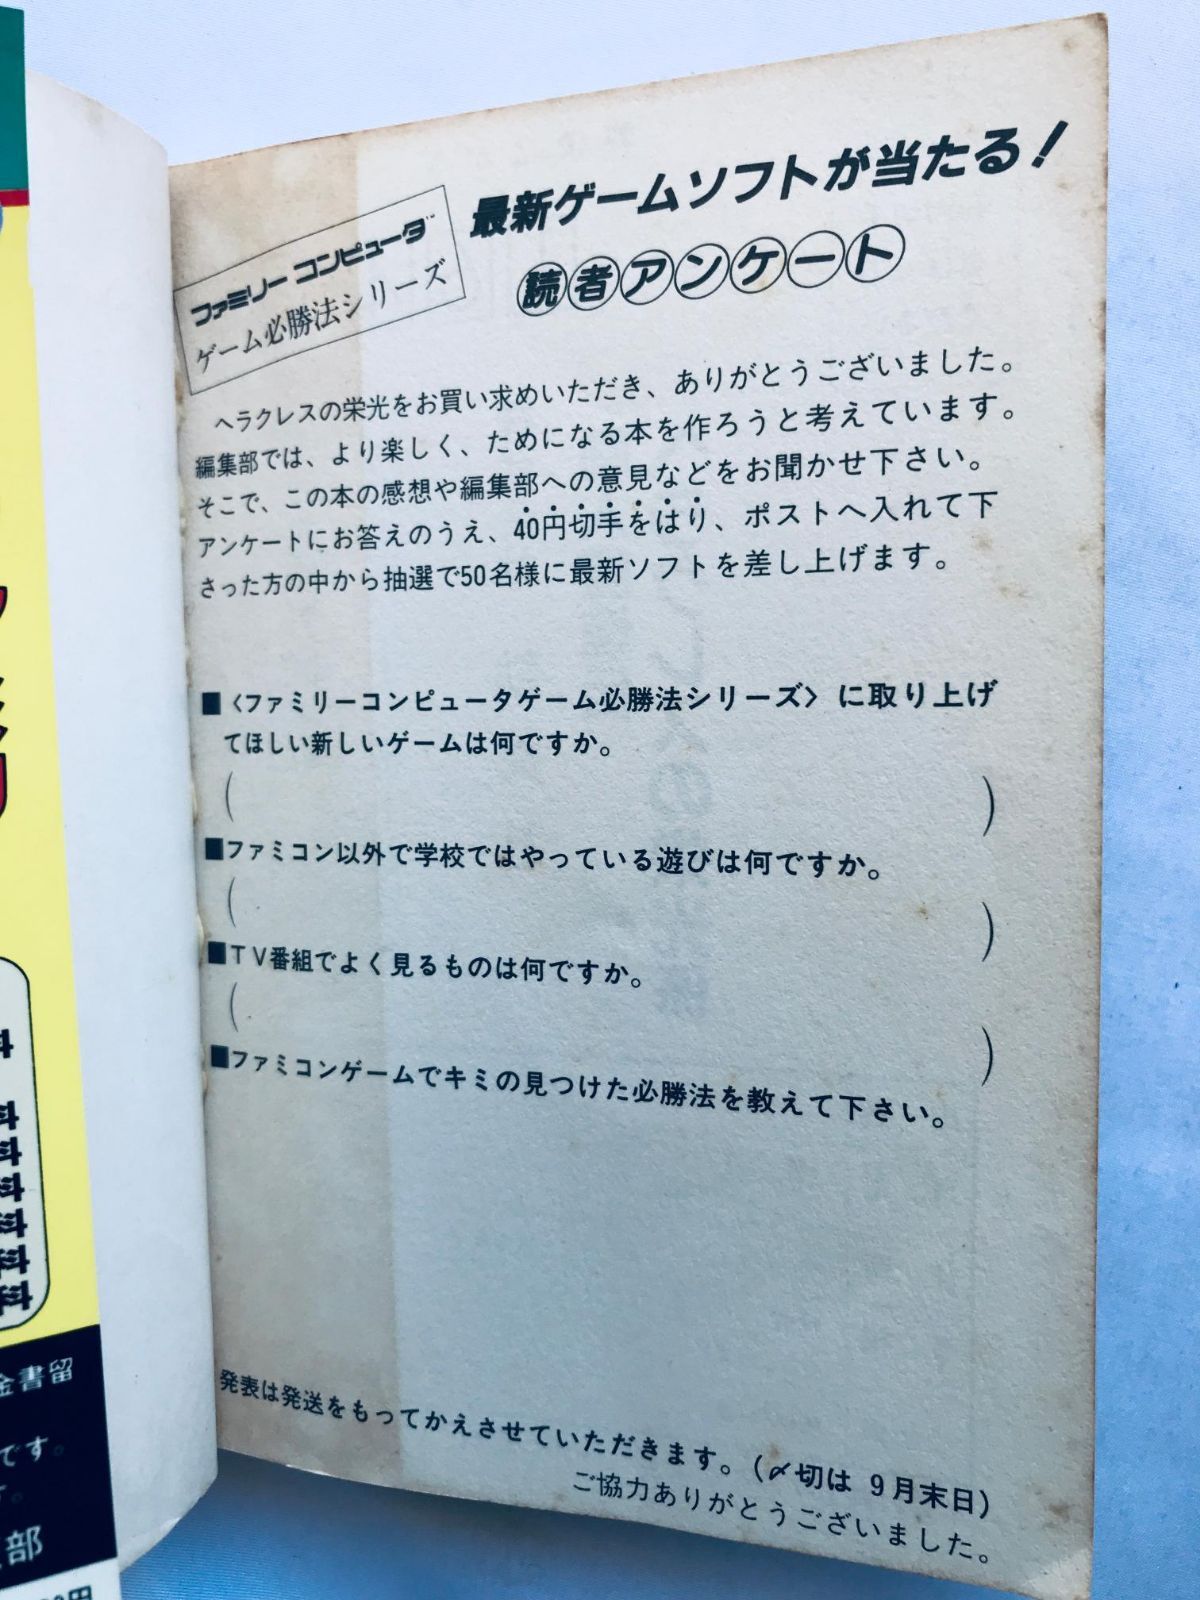 最新ゲームソフトが当たる！
ファミリー コンピュータ
ゲーム必勝法シリーズ
読者アンケート
ヘラクレスの栄光をお買い求めいただき、ありがとうございました。
編集部では、より楽しく、ためになる本を作ろうと考えています。
そこで、この本の感想や編集部への意見などをお聞かせ下さい。
アンケートにお答えのうえ、40円切手をはり、ポストへ入れて下
さった方の中から抽選で50名様に最新ソフトを差し上げます。
■〈ファミリーコンピュータゲーム必勝法シリーズ〉に取り上げ
てほしい新しいゲームは何ですか。
（ ）
■ファミコン以外で学校ではやっている遊びは何ですか。
（ ）
■TV番組でよく見るものは何ですか。
（ ）
■ファミコンゲームでキミの見つけた必勝法を教えて下さい。
発表は発送をもってかえさせていただきます。（〆切は 9月末日）
ご協力ありがとうございました。
金書留
です。
す。
部
円